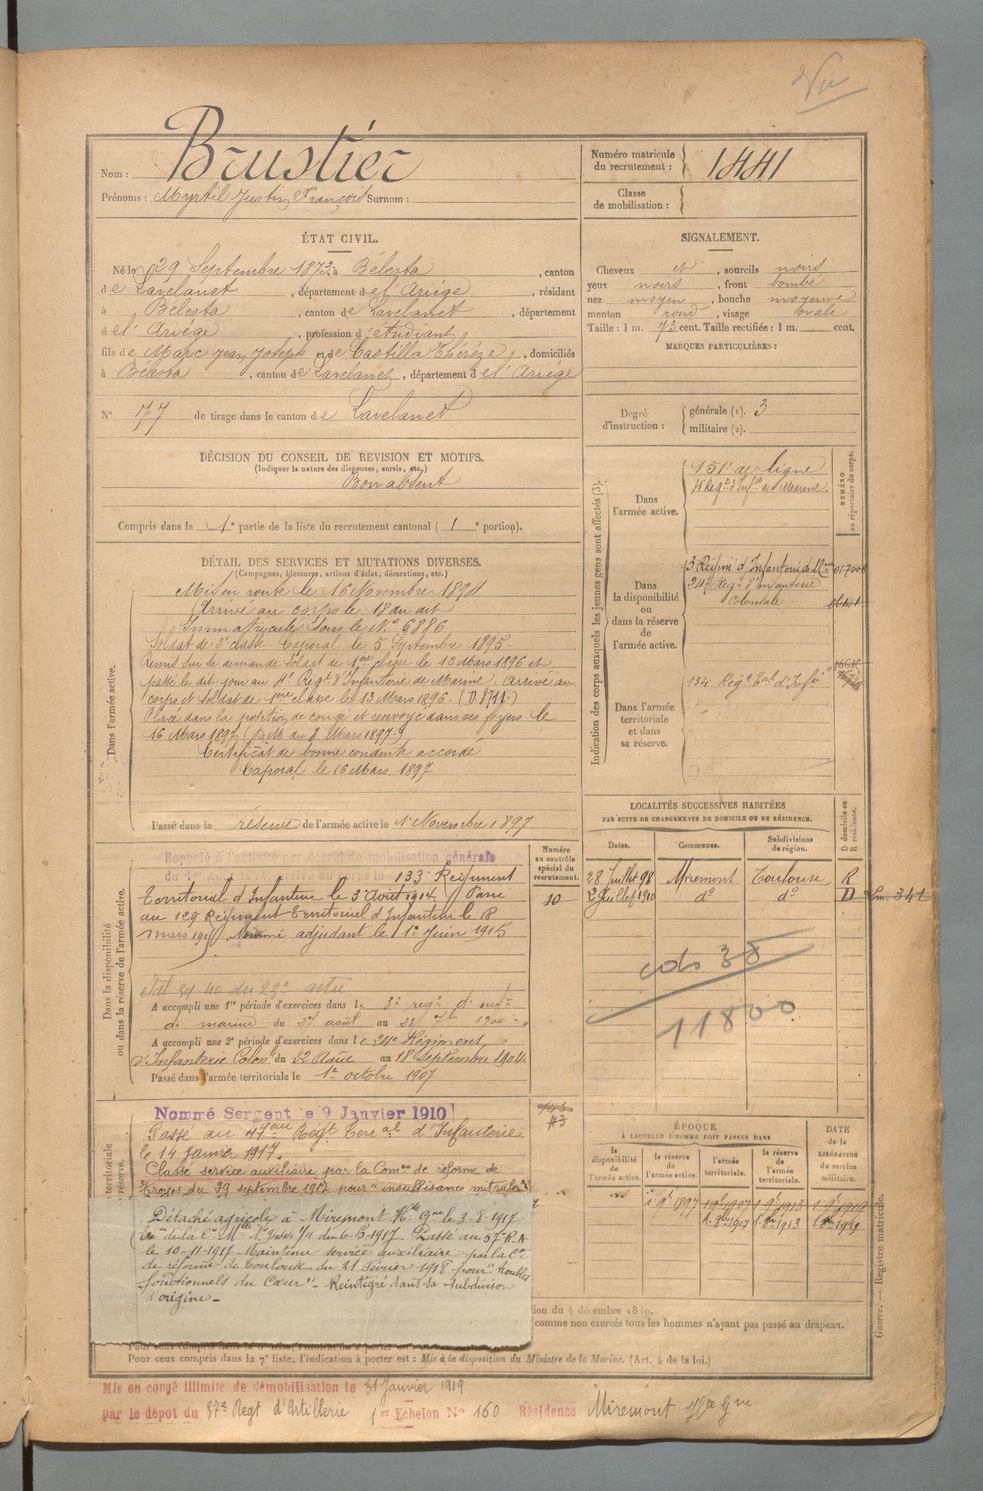 Vu
Nom : Brustier
Prénoms : Myrtil Justin François Surnom :
Numéro matricule du recrutement : 1441
Classe de mobilisation :
ÉTAT CIVIL.
Né le 29 Septembre 1873 à Bélesta, canton
de Lavelanet, département de l'Ariége, résidant
à Bélesta, canton de Lavelanet, département
de l'Ariége, profession d'étudiant,
fils de Marc Jean Joseph et de Castilla Thérèze, domiciliés
à Bélesta, canton de Lavelanet, département de l'Ariége
N° 77 de tirage dans le canton de Lavelanet
SIGNALEMENT.
Cheveux et, sourcils noirs
yeux noirs, front bombé
nez moyen, bouche moyenne
menton rond, visage ovale
Taille : 1 m. 72 cent. Taille rectifiée : 1 m. cent.
MARQUES PARTICULIÈRES :
Degré d'instruction : générale (1). 3
militaire (2).
DÉCISION DU CONSEIL DE REVISION ET MOTIFS.
(Indiquer la nature des dispenses, sursis, etc.)
Bon absent
Compris dans la 1e partie de la liste du recrutement cantonal (1e portion).
DÉTAIL DES SERVICES ET MUTATIONS DIVERSES.
(Campagnes, blessures, actions d'éclat, décorations, etc.)
Dans l'armée active.
Mis en route le 16 Novembre 1894
Arrivé au corps le 18 du dit
Immatriculé sous le N° 6886
Soldat de 2e classe Caporal le 5 Septembre 1895.
Remis sur sa demande soldat de 1ère classe le 12 Mars 1896 et
passé le dit jour au 4e Regt d'Infanterie de Marine. Arrivé au
corps et soldat de 1ère classe le 13 Mars 1896. (D 8711)
Placé dans la position de congé et renvoyé dans ses foyers le
16 Mars 1897 (D.M. du 3 Mars 1897)
Certificat de bonne conduite accordé
Caporal le 16 Mars 1897
Passé dans la réserve de l'armée active le 1er Novembre 1897
Indication des corps auxquels les jeunes gens sont affectés (3).
NUMÉRO au répertoire du corps.
Dans l'armée active.
151e de ligne
4e Regt d'Infie de Marine
Dans la disponibilité ou dans la réserve de l'armée active.
3e Régimt d'Infanterie de Mne
24e Regt d'Infanterie
Coloniale
Dans l'armée territoriale et dans sa réserve.
134 Regt Tal d'Infie
LOCALITÉS SUCCESSIVES HABITÉES
PAR SUITE DE CHANGEMENTS DE DOMICILE OU DE RÉSIDENCE.
Dates. Communes. Subdivisions de région. D domicile ou R résidence.
28 Juillet 98 Miremont Toulouse R
2 Juillet 1910 do do D
cds 38
11800
Dans la disponibilité ou dans la réserve de l'armée active.
Numéro au contrôle spécial du recrutement.
10
Rappelé à l'activité par décret de mobilisation générale
du 1er Août 1914 arrivé au corps le 133e Régiment
Territorial d'Infanterie le 3 Août 1914. Passé
au 129 Régiment Territorial d'Infanterie le 8
mars 1915 Nommé adjudant le 1er Juin 1915
A accompli une 1re période d'exercices dans le 3e regt d'infie
de marine du 27 août au 23 7bre 1900
A accompli une 2e période d'exercices dans le 24e Régiment
d'Infanterie Colon. du 22 Août au 18 Septembre 1904
Passé dans l'armée territoriale le 1er octobre 1907
Nommé Sergent le 9 Janvier 1910
Passé au 47eme Regt Teral d'Infanterie
le 14 Janvier 1917.
Classé service auxiliaire par la Comon de réforme de
Troyes du 29 septembre 1917 pour "insuffisance mitrale"
Détaché agricole à Miremont Hte Gne le 3-8-1917
Passé au 57e R.A
le 10-11-1917 Maintenu service auxiliaire par la Con
de réforme de Toulouse du 21 février 1918 pour "troubles
fonctionnels du Cœur" - Réintégré dans sa subdivision
d'origine -
ÉPOQUE
À LAQUELLE L'HOMME DOIT PASSER DANS
la disponibilité de l'armée active. la réserve de l'armée active. l'armée territoriale. la réserve de l'armée territoriale.
DATE de la LIBÉRATION du service militaire.
1 9bre 1897 1 9bre 1907 1 9bre 1913 1 9bre 1919
1 8bre 1907 1 8bre 1913 1 8bre 1919
Guerre. — Registre matricule.
tion du 4 décembre 1889.
comme non exercés tous les hommes n'ayant pas passé au drapeau.
Pour ceux compris dans la 7e liste, l'indication à porter est : Mis à la disposition du Ministre de la Marine. (Art. 4 de la loi.)
Mis en congé illimité de démobilisation le 31 Janvier 1919
par le dépôt du 57e Regt d'Artillerie 1er Echelon N° 160 Résidence Miremont Hte Gne